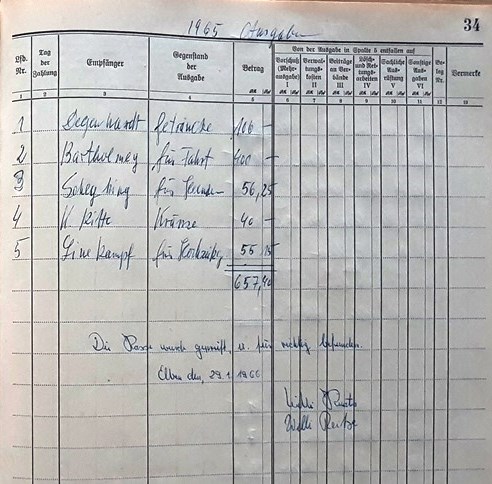 1965 Ausgaben
34
Lfd. Nr.
Tag der Zahlung
Empfänger
Gegenstand der Ausgabe
Betrag
Von der Ausgabe in Spalte 5 entfallen auf
Vorschuß (Mehrausgabe) I
Verwaltungskosten II
Beiträge an Verbände III
Lösch- und Rettungsarbeiten IV
Sachliche Ausrüstung V
Sonstige Ausgaben VI
Beleg Nr.
Vermerke
1 2 3 4 5 6 7 8 9 10 11 12 13
1 Degenhardt Getränke 100 —
2 Bartholmey für Fahrt 400 —
3 für 56,25
4 K. Kränze 40 —
5 Kampf für 55 15
657,40
Die Kasse wurde geprüft, u. für richtig befunden.
den, 29.1.1966
Willi